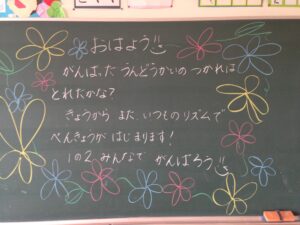 おはよう!
がんばった うんどうかいの つかれは
とれたかな?
きょうから また、いつものリズムで
べんきょうが はじまります!
1の2 みんなで がんばろう